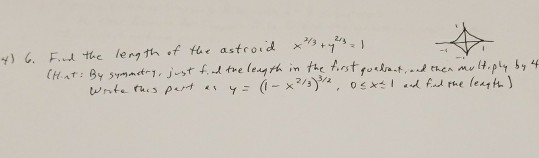 4) 6. Find the length of the astroid x^{2/3} + y^{2/3} = 1
(Hint: By symmetry, just find the length in the first quadrant, and then multiply by 4
Write this part as y = (1 - x^{2/3})^{3/2}, 0 ≤ x ≤ 1 and find the length)